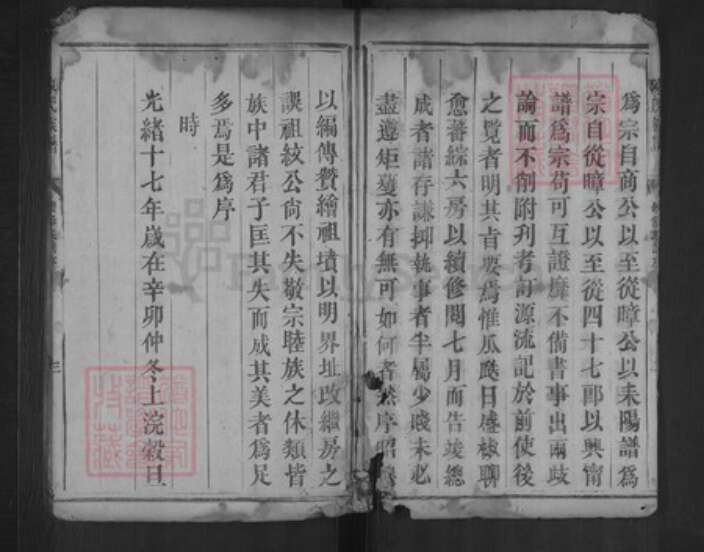 為宗自商公以至從暐公以耒陽譜為
宗自從暐公以至從四十七郎以興甯
譜為宗苟可互證靡不備書事出兩歧
論而不削附刋考訂源流記於前使後
之覽者明其旨要焉惟瓜瓞日盛椒聊
愈蕃綜六房以續修閱七月而告竣總
成者諸存謙抑執事者半屬少賤未必
盡遵矩蒦亦有無可如何者 序昭
以編傳贊繪祖墳以明界址改繼房之
誤祖紋公尙不失敬宗睦族之休類皆
族中諸君子匡其失而成其美者為足
多焉是為序
時
光緒十七年歲在辛卯仲冬上浣穀旦